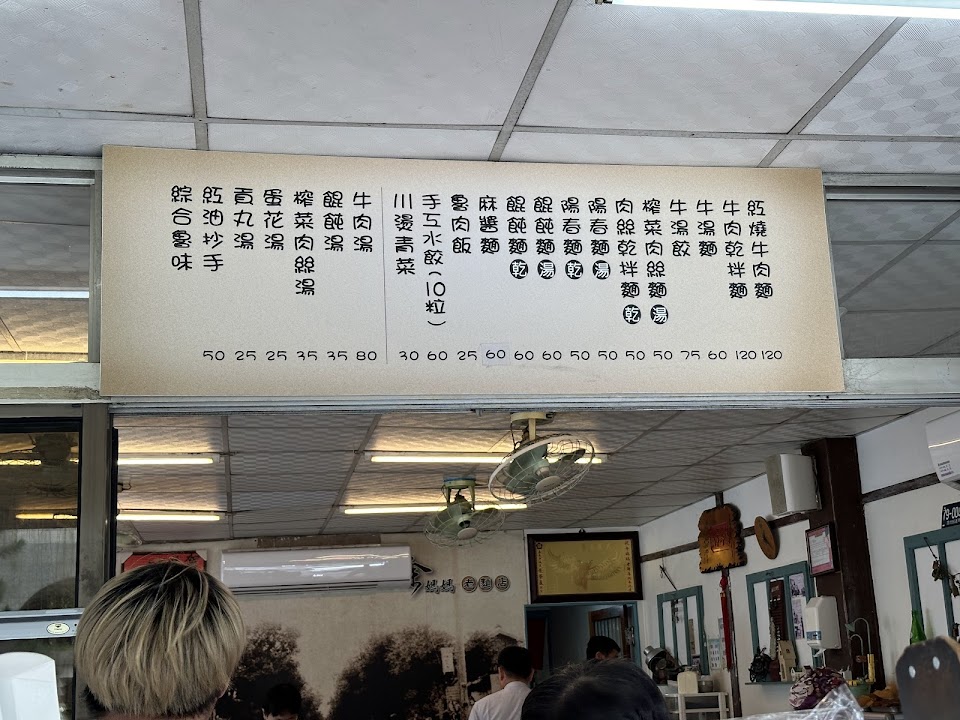 紅燒牛肉麵 120
牛肉乾拌麵 120
牛湯麵 60
牛湯餃 75
榨菜肉絲麵湯 50
肉絲乾拌麵乾 50
陽春麵湯 50
陽春麵乾 50
餛飩麵湯 60
餛飩麵乾 60
麻醬麵 60
魯肉飯 25
手工水餃(10粒) 60
川燙青菜 30
牛肉湯 80
餛飩湯 35
榨菜肉絲湯 35
蛋花湯 25
貢丸湯 25
紅油抄手 50
綜合魯味
媽媽老麵店